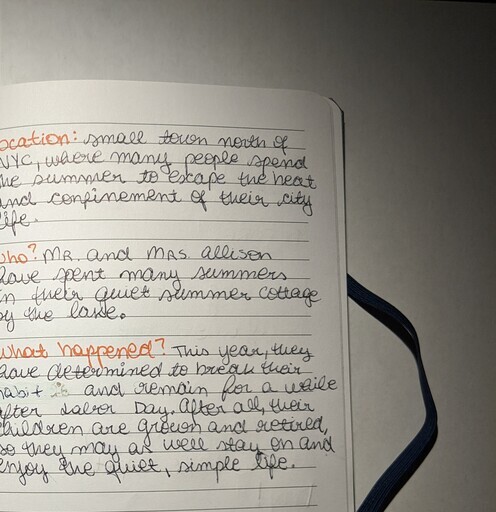 ocation: small town north of
NYC, where many people spend
the summer to escape the heat
and confinement of their city
life.
who? MR. and MRS. allison
have spent many summers
in their quiet summer cottage
by the lake.
what happened? This year, they
have determined to break their
habit and remain for a while
after Labor Day. After all, their
children are grown and retired,
so they may as well stay on and
enjoy the quiet, simple life.